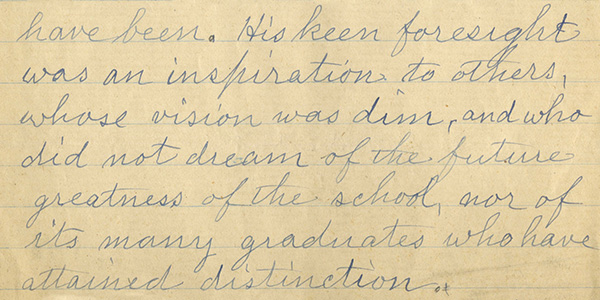 have been. His keen foresight
was an inspiration to others,
whose vision was dim, and who
did not dream of the future
greatness of the school, nor of
its many graduates who have
attained distinction.